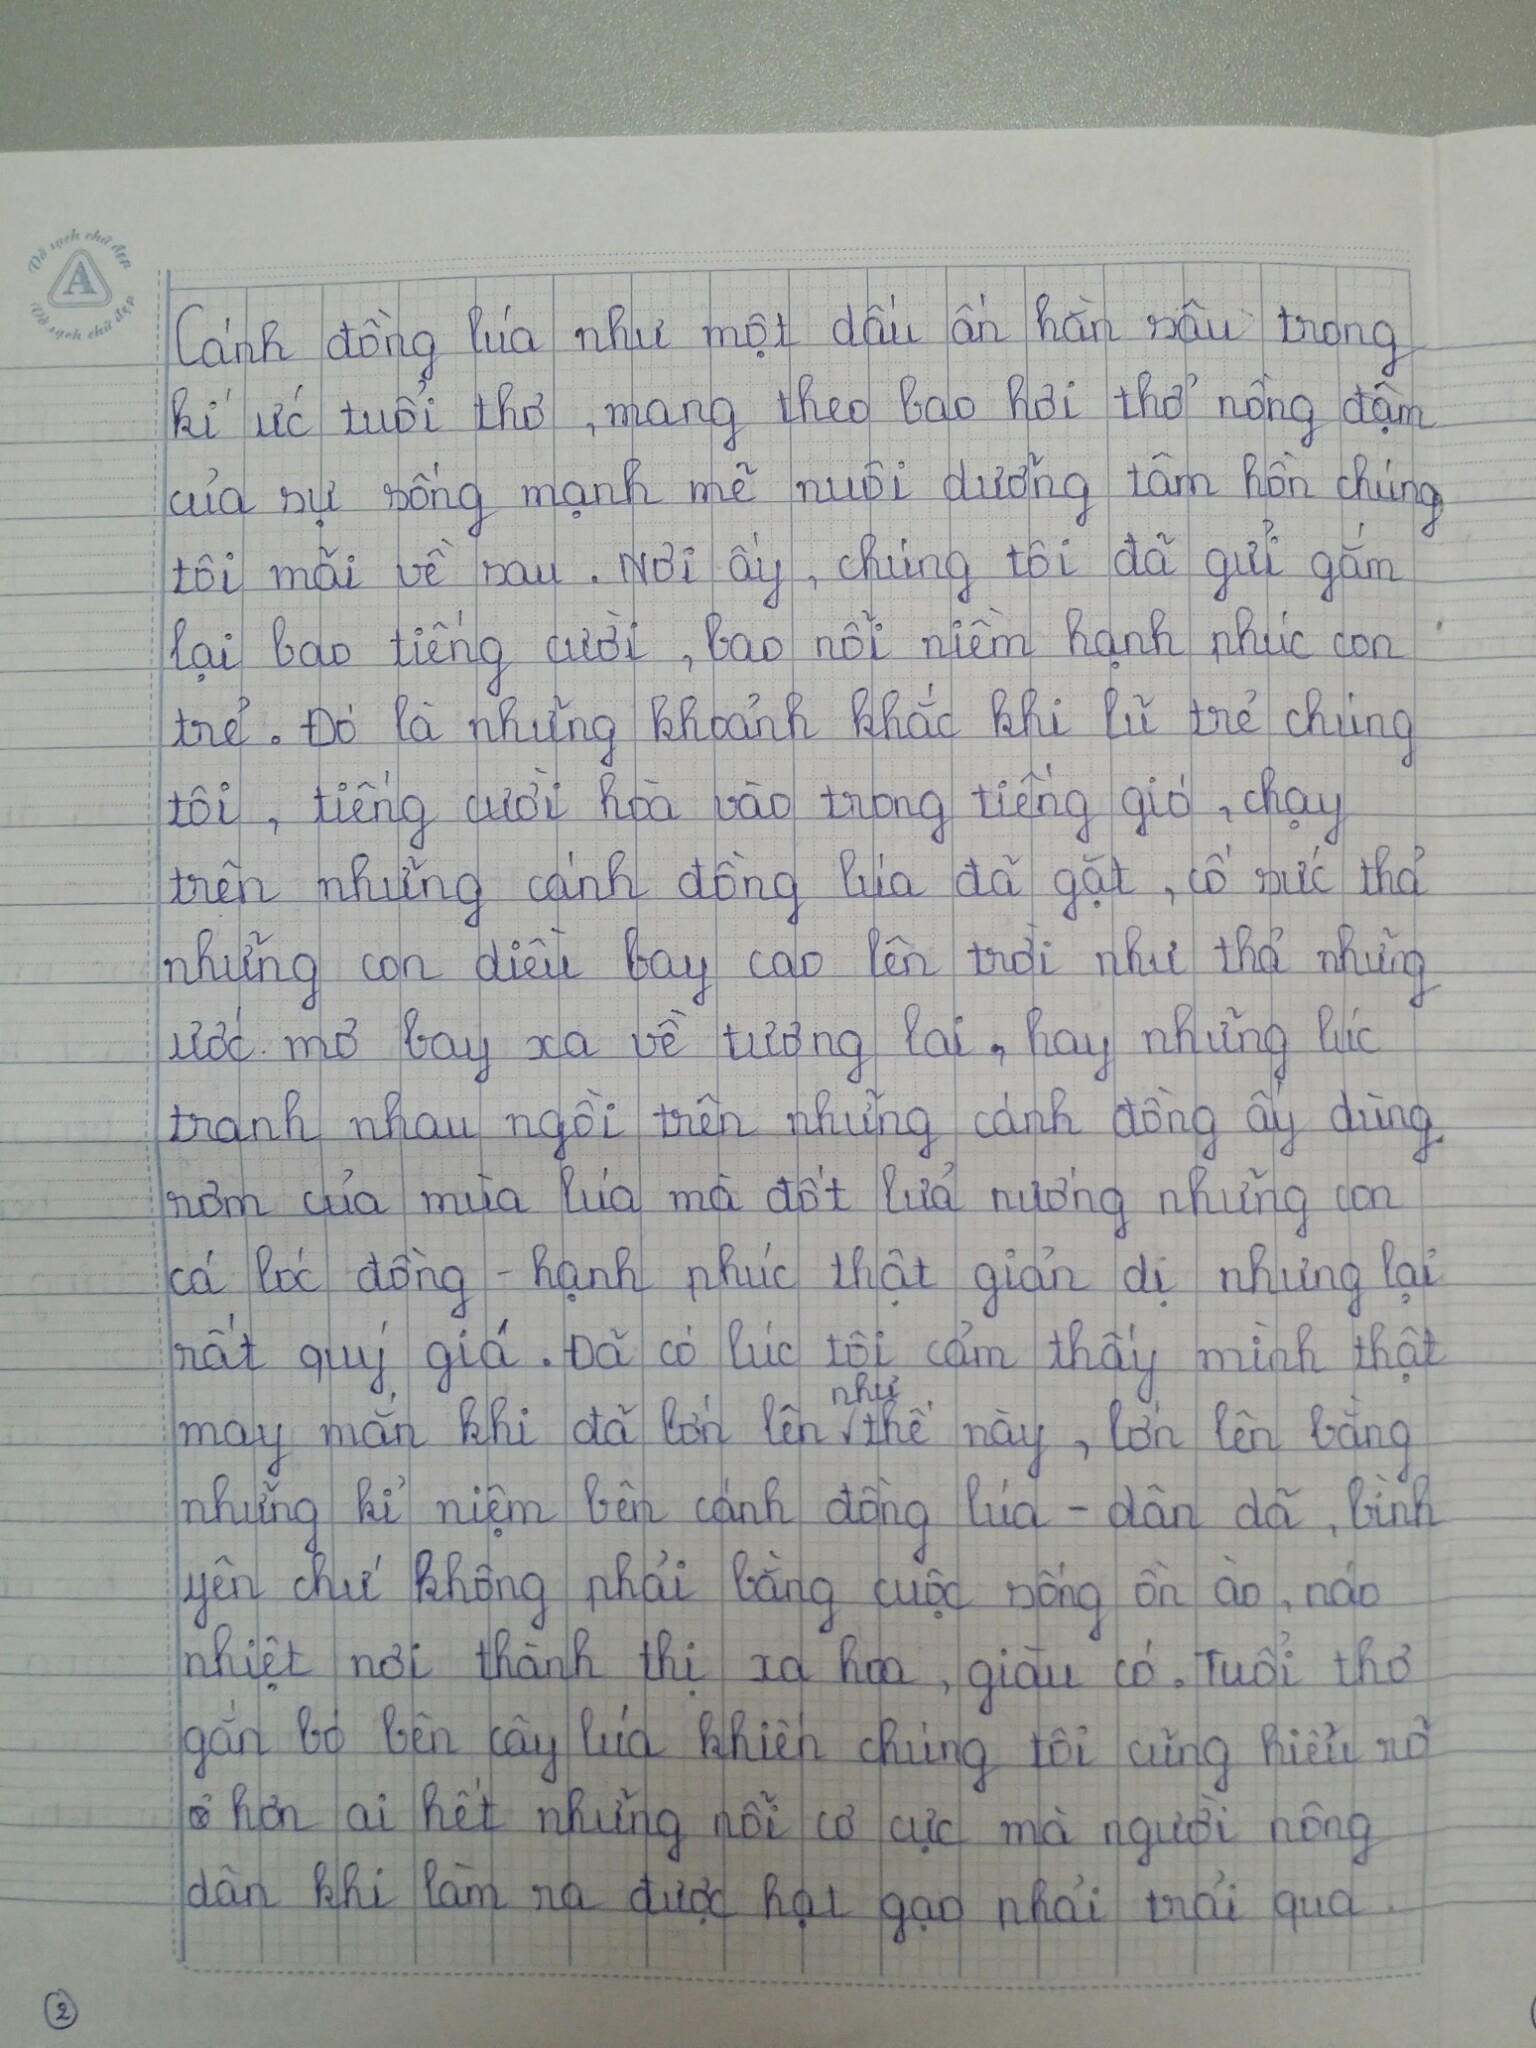 Vở sạch chữ đẹp
A
Vở sạch chữ đẹp
Cánh đồng lúa như một dấu ấn hằn sâu trong
kí ức tuổi thơ, mang theo bao hơi thở nồng đậm
của sự sống mạnh mẽ nuôi dưỡng tâm hồn chúng
tôi mãi về sau. Nơi ấy, chúng tôi đã gửi gắm
lại bao tiếng cười, bao nỗi niềm hạnh phúc con
trẻ. Đó là những khoảnh khắc khi lũ trẻ chúng
tôi, tiếng cười hoà vào trong tiếng gió, chạy
trên những cánh đồng lúa đã gặt, cố sức thả
những con diều bay cao lên trời như thả những
ước mơ bay xa về tương lai, hay những lúc
tranh nhau ngồi trên những cánh đồng ấy dùng
rơm của mùa lúa mà đốt lửa nướng những con
cá lóc đồng - hạnh phúc thật giản dị nhưng lại
rất quý giá. Đã có lúc tôi cảm thấy mình thật
may mắn khi đã lớn lên như thế này, lớn lên bằng
những kỉ niệm bên cánh đồng lúa - dân dã, bình
yên chứ không phải bằng cuộc sống ồn ào, náo
nhiệt nơi thành thị xa hoa, giàu có. Tuổi thơ
gắn bó bên cây lúa khiến chúng tôi cũng hiểu rõ
hơn ai hết những nỗi cơ cực mà người nông
dân khi làm ra được hạt gạo phải trải qua.
2